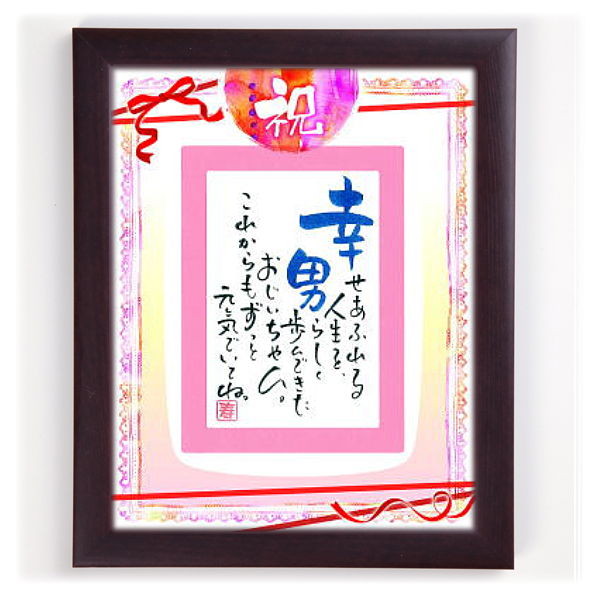 祝
幸せあふれる
人生を、
男らしく
歩んできた
おじいちゃん。
これからもずっと
元気でいてね。
寿